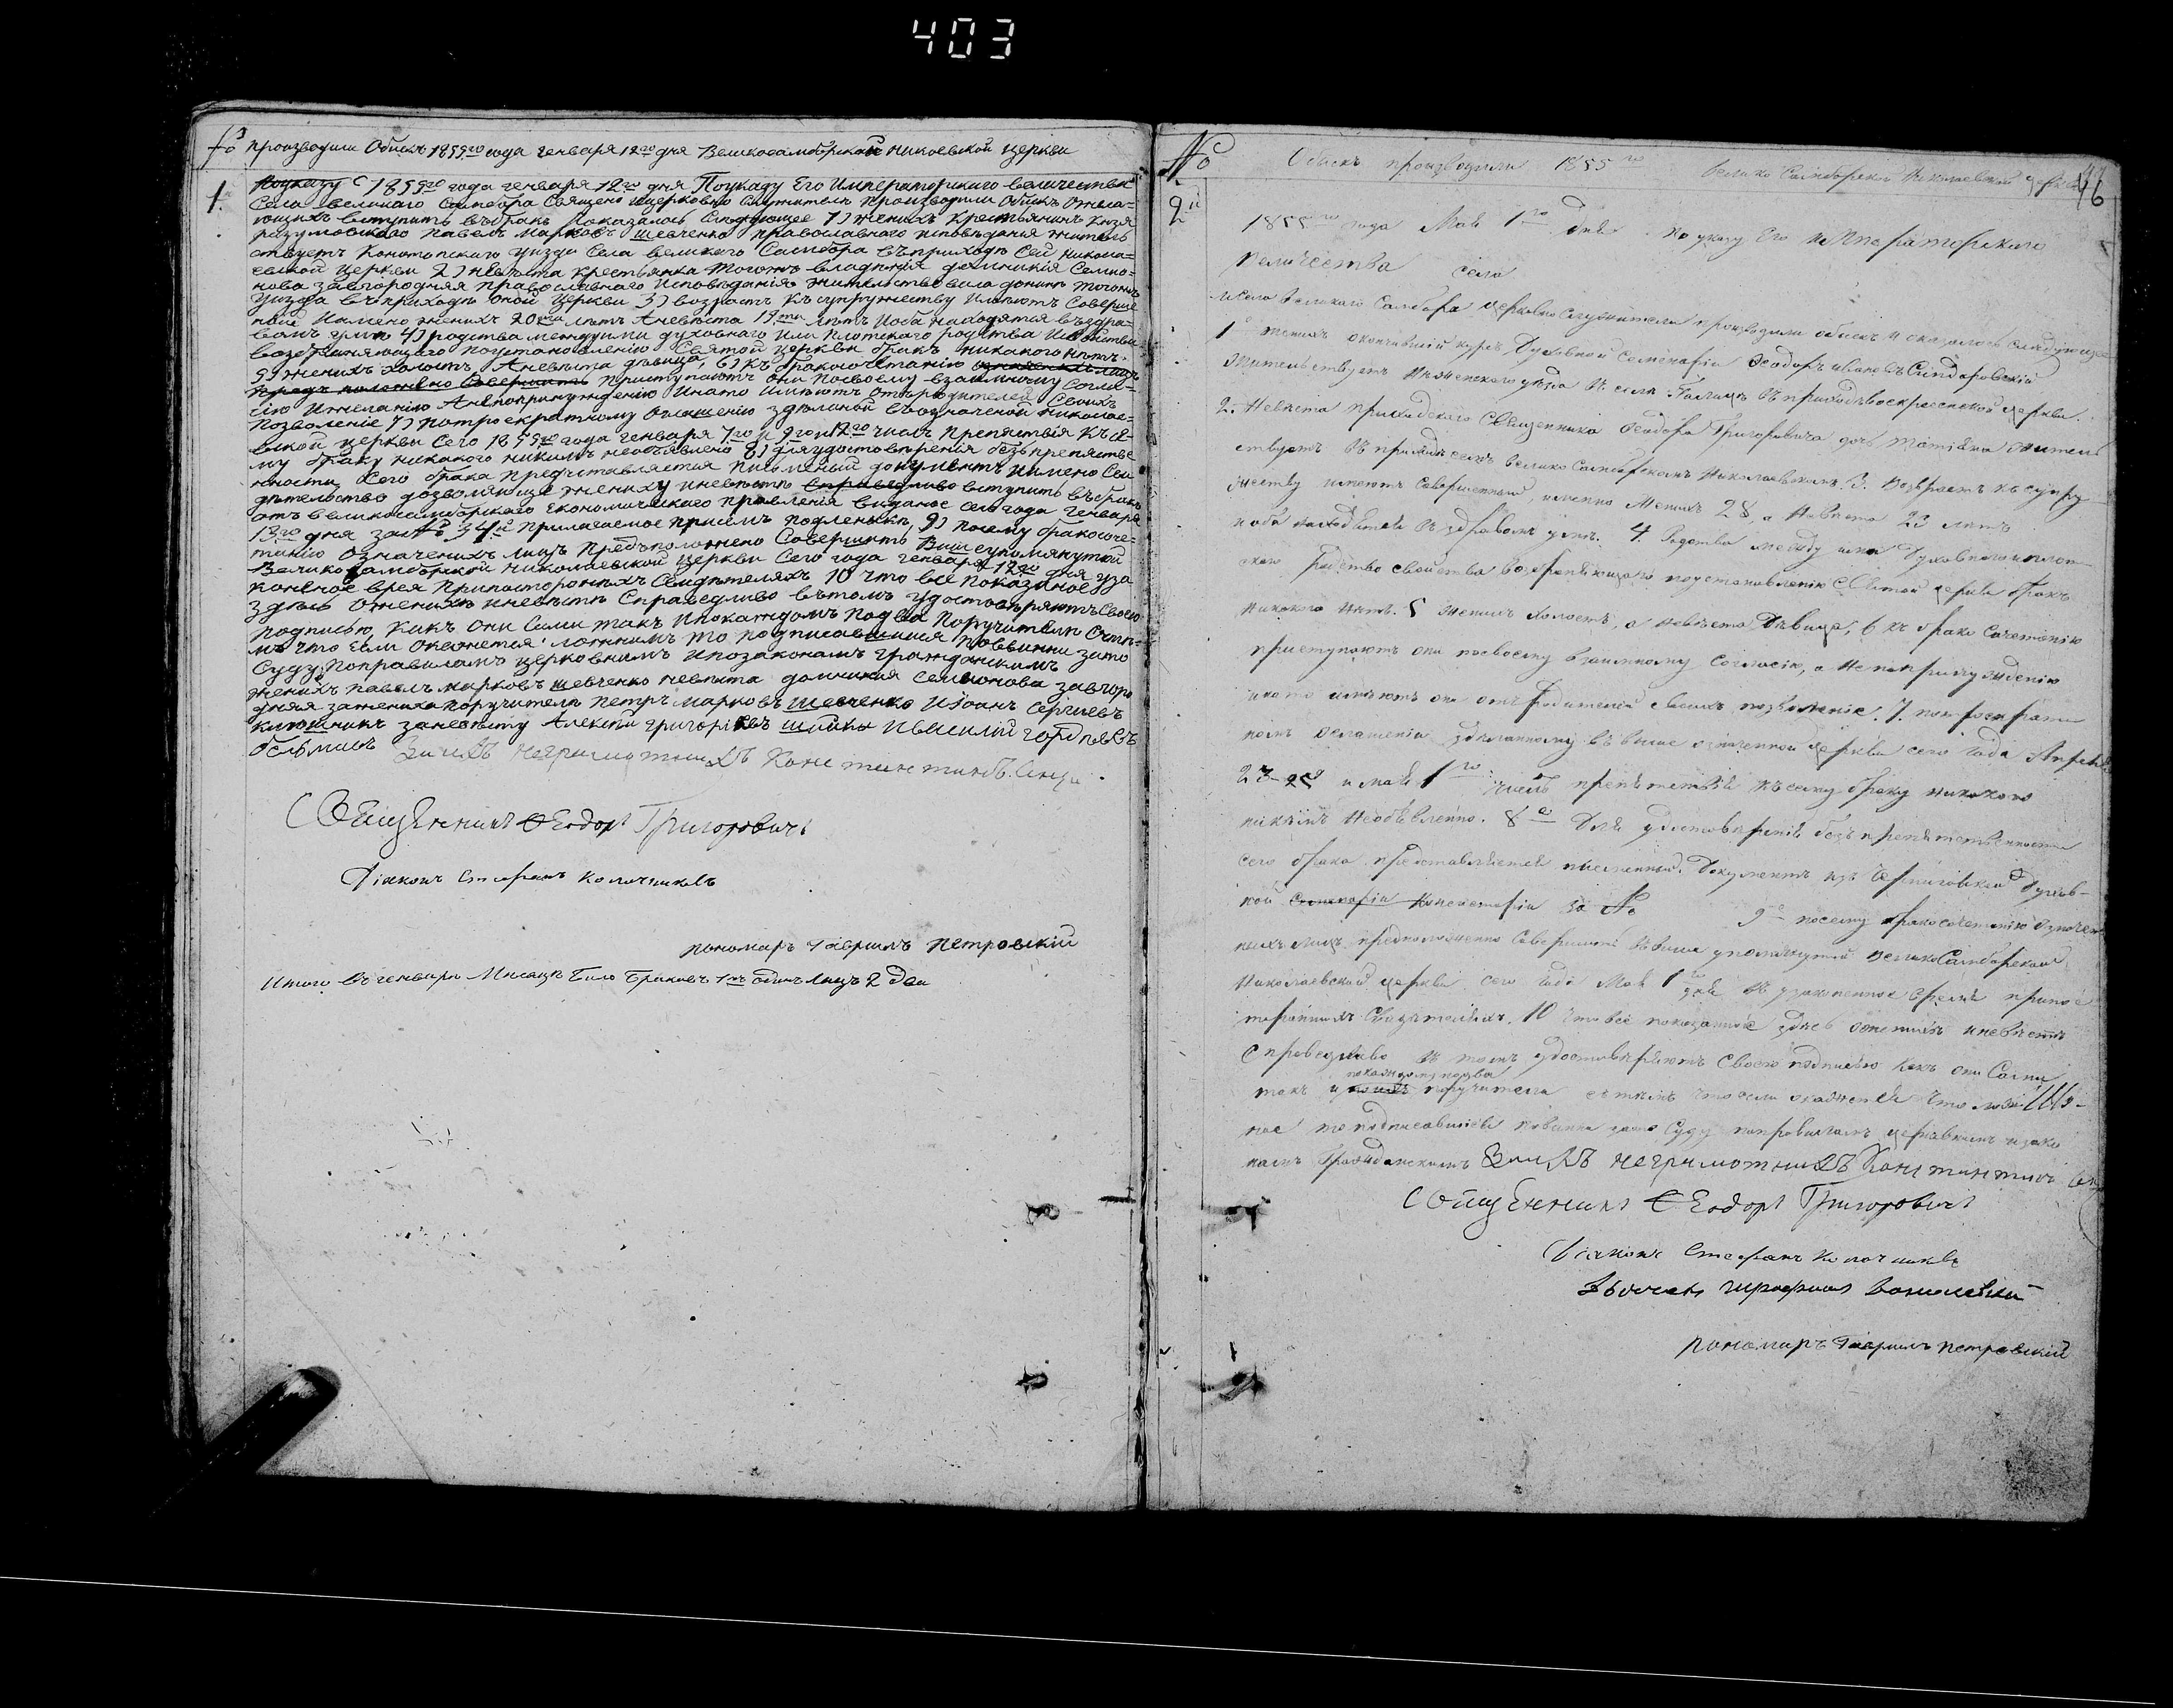 403
№ производили Обискъ 1855го года генваря 12го дня Великосамборской никоевской церкви
1. Поуказу 1855го года генваря 12го дня Поуказу Его Императорскаго величества
Села великаго Самбора Священо ицерковно Служители Производили Обискъ Ожела-
ющихъ вступить въбракъ Показалось Следующее 1) женихъ Крестьянинъ Князя
разумовскаго павелъ марковъ шевченко православнаго исповѣданія житель
ствуетъ Конотопского уизда Села великаго Самбора въприходѣ Сей никола-
евской церкви 2) невѣста крестьянка тогожъ владѣнія домникія Семио-
нова завгородняя православнаго Исповѣданія жительствовала донинѣ тогожъ
уизда въприходѣ оной церкви 3) возрастъ къ супружеству Имѣютъ Соверше
ной Имѣно женихъ 20ти лѣтъ Аневѣста 19ти лѣтъ Иоба находятся въздра-
вомъ умѣ 4) родства междуими духовнаго Или плотскаго родства Исвойства
возбраняющаго поустановленію Святой церкви бракъ никакого нѣтъ
5) женихъ холостъ, Аневѣста дѣвица, 6) къ бракосочетанію
предположено Совершить приступаютъ они посвоему взаимному Согла-
сію Ижеланію Анепопринужденію Инато Имѣютъ Отъродителей Своихъ
Позволеніе 7) Потроекратному Оглашению здѣланой въозначеной николае-
вской церкви Сего 1855го года генваря 7го и 9го и 12го числъ Препятствія Къ се-
му браку никакого никимъ необъявлено 8) дляудостовѣренія безъпрепятстве
нности Сего брака предъставляется письменый документъ имено Сви
дѣтельство дозволяюще жениху иневѣстѣ Справедливо вступить въбракъ
отъ великосамборскаго Економическаго правленія виданое сего года генваря
13го дня за № 34 прилагаемое присемъ подленикъ, 9) посему бракосоче-
танію Означенихъ лицъ Предъположено Совершить Вышеупомянутой
Великосамборской николаевской церкви Сего года генваря 12го дня уза
коненое врея Припосторонихъ Свидѣтеляхъ 10 что все показаное
здѣсь Ожених иневѣстѣ Справедливо вътомъ удостовѣряютъ Своею
подписью, какъ они Сами такъ Ипокаждомъ Подва Поручители Стѣ-
мъ что Если Окажется ложнимъ то подписавшиися Повинни зато
Суду Поправиламъ церковнимъ Ипозаконамъ гражданскимъ
женихъ павелъ марковъ шевченко невѣста домникия Семионова завгоро
дняя зажениха поручители петръ марковъ шевченко Иоанъ Сергиевъ
ключникъ заневѣсту Алексѣй григориевъ Ивасилій
Заихъ неграмотнихъ Константинъ
Священникъ Феодоръ Григоровичъ
Діаконъ Стефанъ Колочниковъ
пономаръ Гавриилъ Петровский
Итого въ генварѣ Мисяцѣ било браковъ 1нъ одинъ лицъ 2 два
№ Обискъ производили 1855го велико Самборской Николаевской церкви
46
2й 1855го года Мая 1го дня по указу Его Императорского
Величества село
исела великаго Самбора церковно служители производили обискъ и оказалось следующее
1е женихъ окончившій курсъ Духовной Семенаріи Феодоръ ивановъ
жительствуетъ Нѣженского уѣзда въ селѣ въ приходѣ воскресенской церкви.
2. Невѣста приходского Священника Феодора Григоровича дочь житель
ствуетъ въ приходѣ селѣ велико Самборскомъ Николаевскомъ. 3. Возврастъ къ супру
жеству имеютъ Совершенный, именно Женихъ 28, а Невѣста 23 лѣтъ
и оба находятся въ здравомъ умѣ. 4 Родства между ими духовного иплот
скаго родство свойства возбраняющаго поустановлению Святой церкви бракъ
никакого нѣтъ. 5 женихъ холостъ, а невѣста Дѣвица, 6 къ брако сочетанію
приступаютъ они посвоему взаимному согласію, а непопринуждению
инато имѣютъ они отъ родителей своихъ позволение. 7. потроекрати
номъ оглашении зделанному въ выше означенной церкви сего года Апреля
23 25 и мая 1го числъ препятствія къ сему браку никакого
никѣмъ необявленно. 8е Для удостовѣренія безъпрепятственности
сего брака представляется письменный Документъ изъ Черниговской Духов-
ной Семинаріи Консисторіи за № 9е посему бракосочетанію означен
ныхъ лицъ предположенно Совершить въвыше упомянутой велико Самборской
Николаевской церкви сего года Мая 1го дня въ узаконенное время припос
торонныхъ Свидетеляхъ. 10 что всё показанное здесь ожених иневѣстѣ
Справедливо въ томъ удостовѣряютъ своею подписью какъ они Сами
покаждомъ подва
такъ и поручители стемъ что если окажется что лож-
ное то подписавшіеся повинни зато Суду поправиламъ церковнымъ изако
намъ Гражданскимъ Заихъ неграмотнихъ Константинъ
Священникъ Феодоръ Григоровичъ
Діаконъ Стефанъ Колочниковъ
пономаръ Гавриилъ петровский